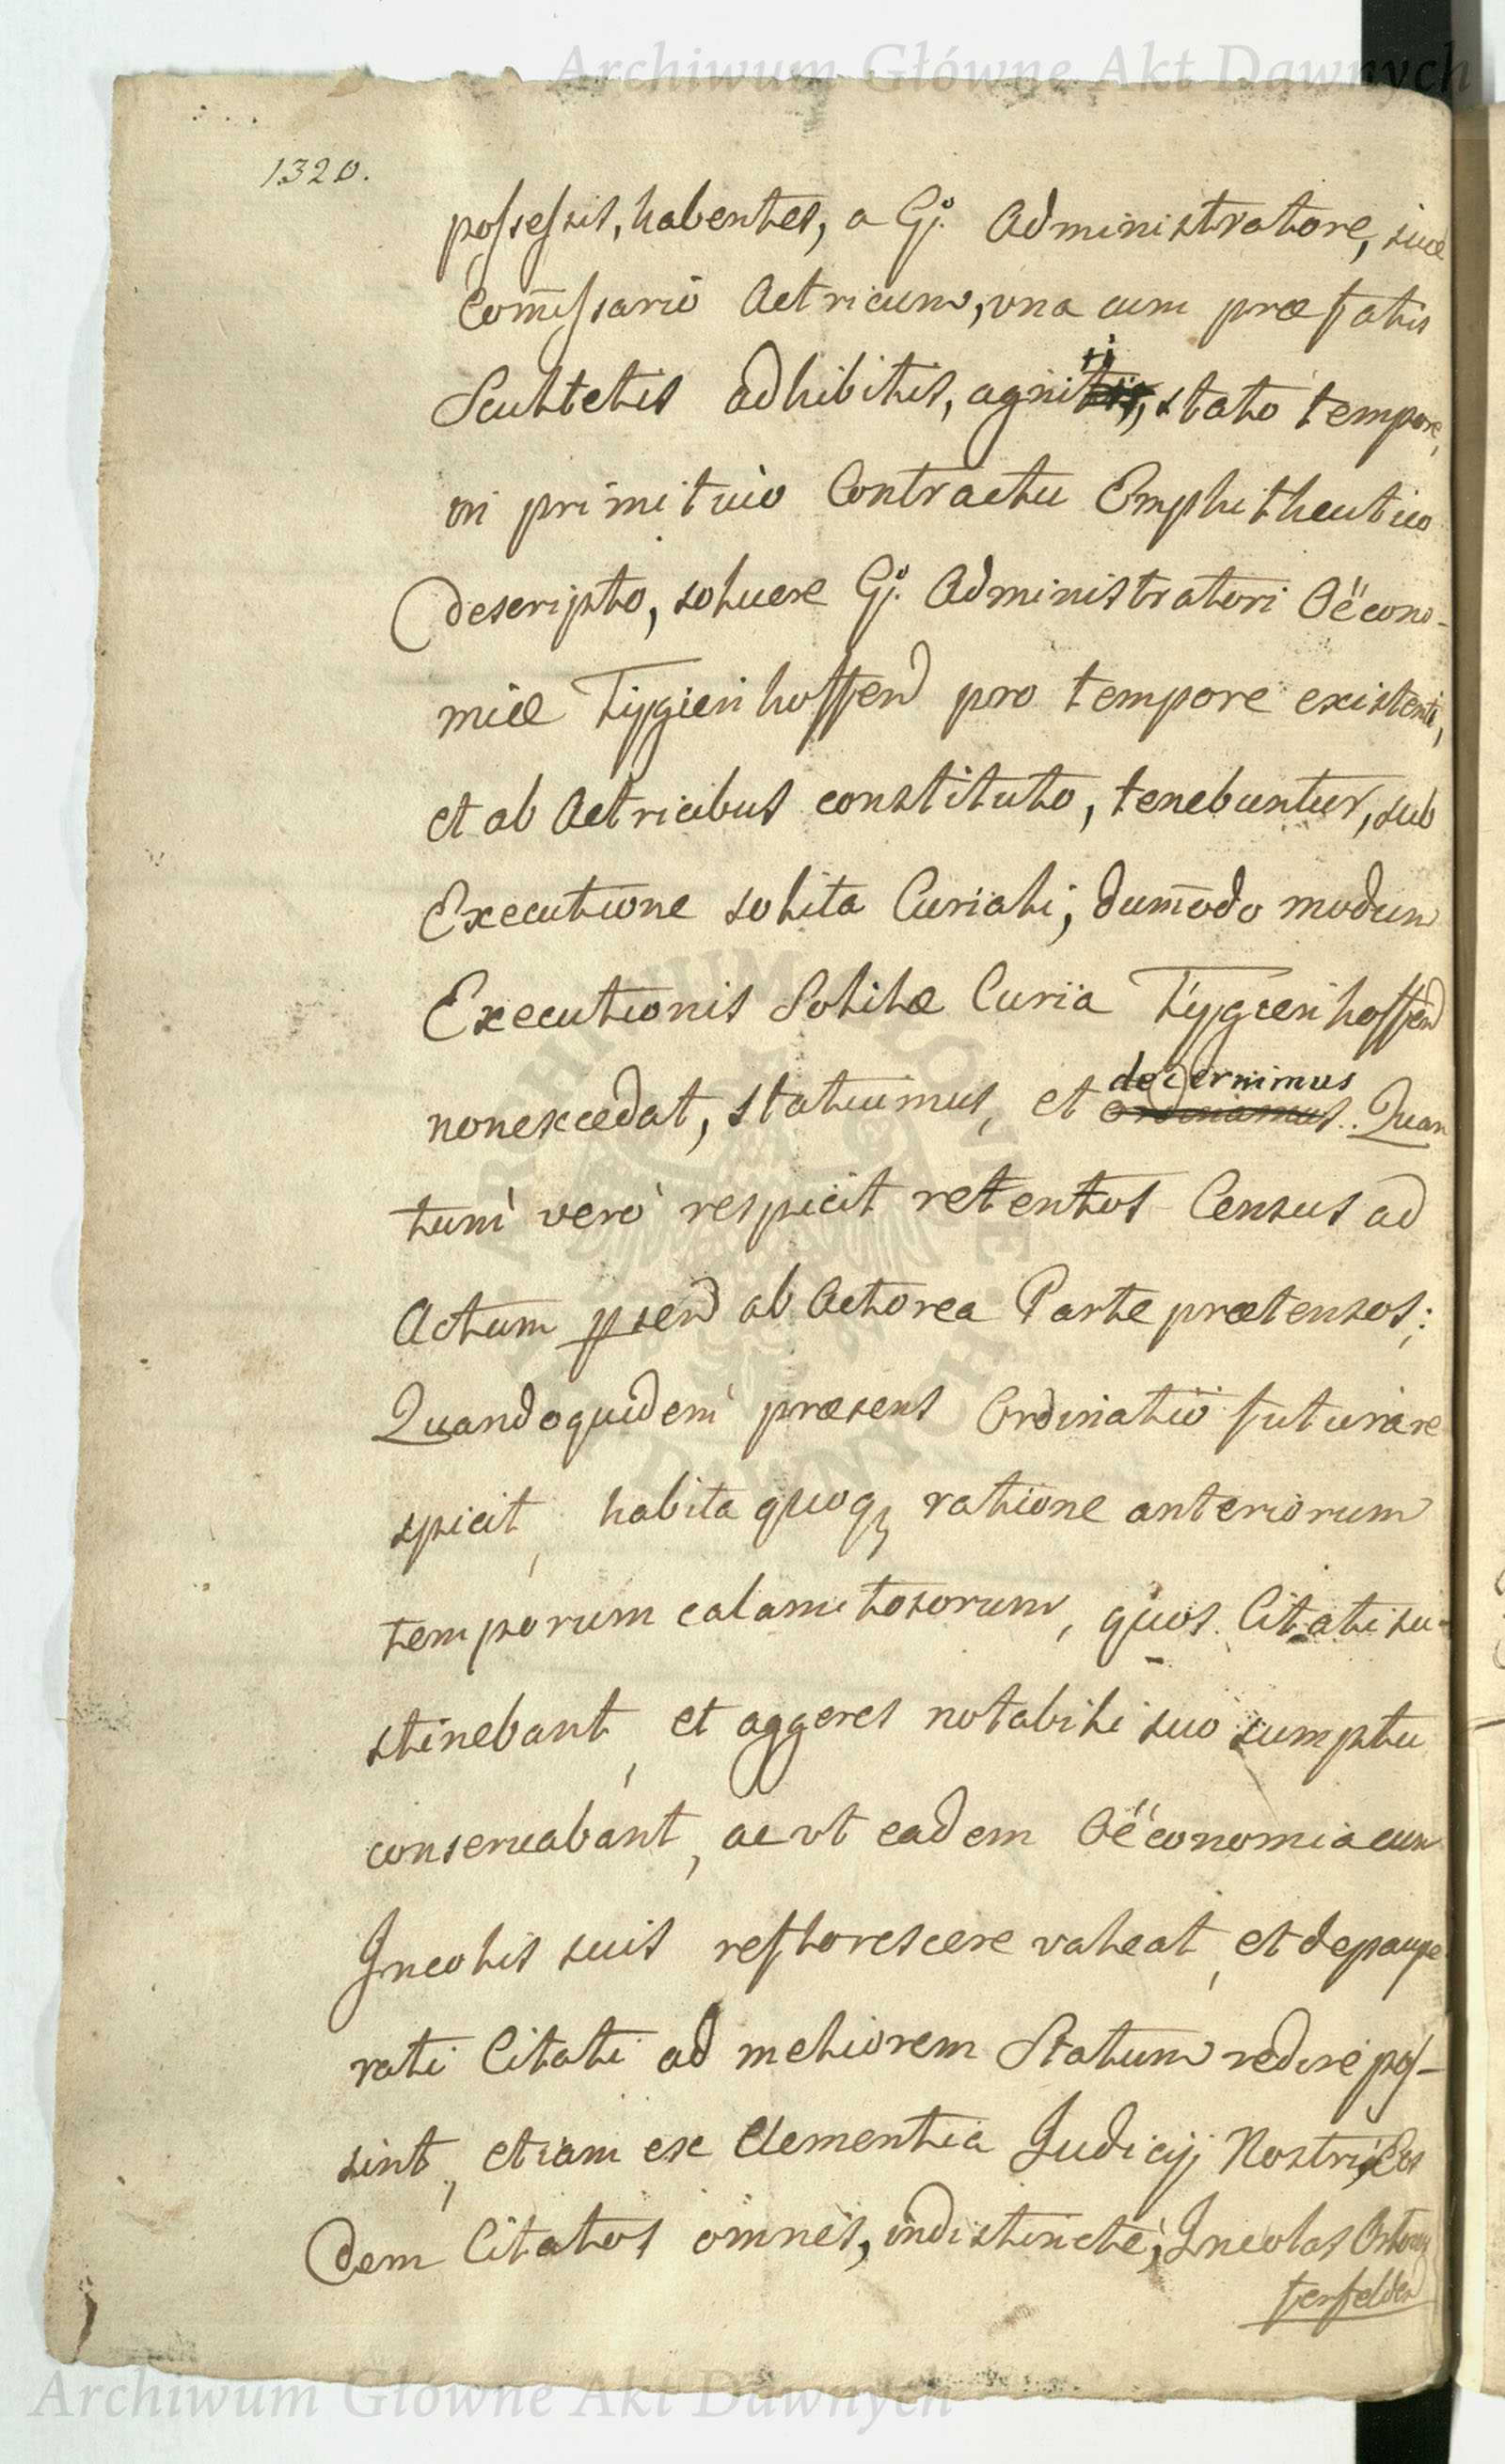 Archiwum Główne Akt Dawnych
1320.
possessis, habentes, a G. Administratore, siue
Com̄issario Actricum, vna cum præfatis
Scultetis adhibitis, agniti, stato tempore,
in primitiuo Contractu Emphitheutico
descripto, soluere G. Administratori Oëcono-
miæ Tygienhoffen pro tempore existenti,
et ab Actricibus constituto, tenebuntur, sub
Executione solita Curiali; dum̄odo modum
Executionis Solitæ Curia Tygienhoffen
non excedat, statuimus, et decernimus. Quan
tum verò respicit retentos Census ad
Actum psen ab Actorea Parte prætensos;
Quandoquidem præsens Ordinatio futura re
spicit, habita quoq; ratione anteriorum
temporum calamitosorum, quos Citati su-
stinebant, et aggeres notabili suo sumptu
conseruabant, ac vt eadem Oëconomia cum
Incolis suis reflorescere valeat, et depaupe
rati Citati ad meliorem Statum redire pos-
sint, etiam ex Clementia Judicij Nostri, Eos
dem Citatos omnes, indistincte, Incolas
terfelden
Archiwum Główne Akt Dawnych